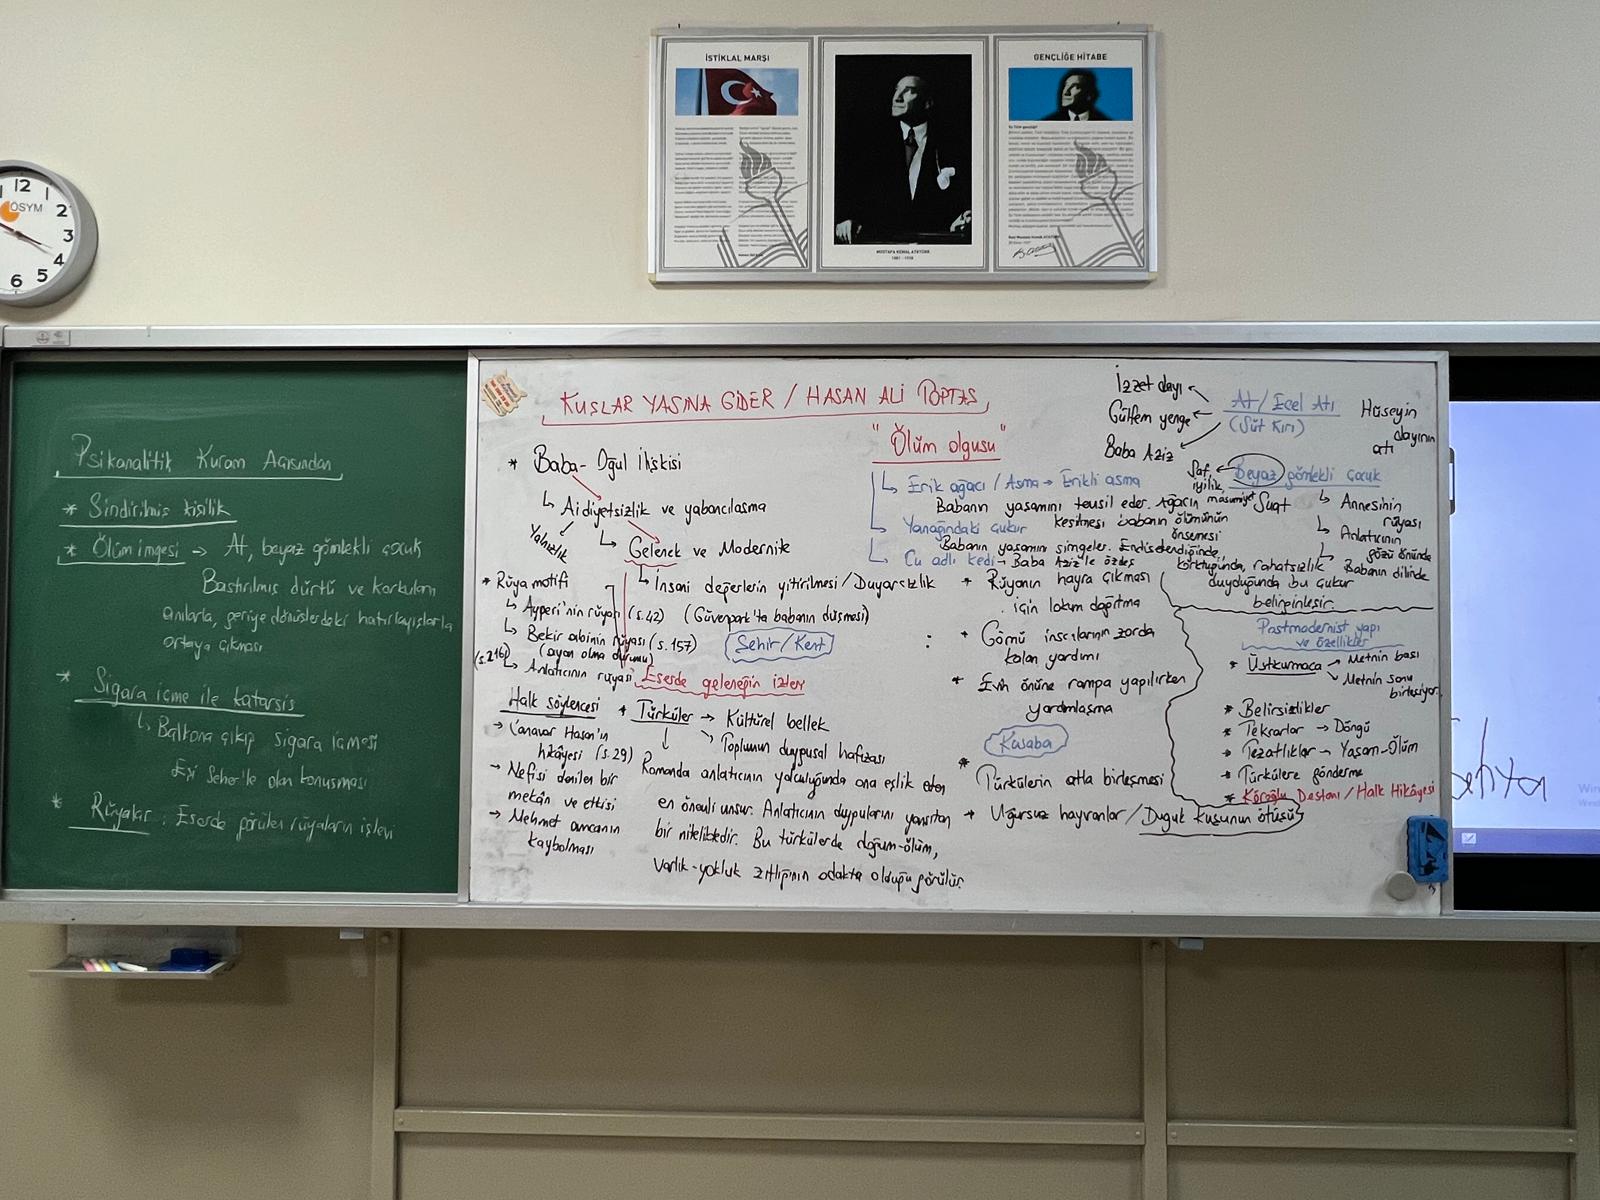 İSTİKLAL MARŞI
GENÇLİĞE HİTABE
MUSTAFA KEMAL ATATÜRK
1881 - 1938
ÖSYM
12
2
3
4
5
6
Psikanalitik Kuram Açısından
* Sindirilmiş kişilik
* Ölüm imgesi → At, beyaz gömlekli çocuk
Bastırılmış dürtü ve korkuların
anılarla, geriye dönüşlerdeki hatırlayışlarla
ortaya çıkması
* Sigara içme ile katarsis
↳ Balkona çıkıp sigara içmesi
Eşi Seher'le olan konuşması
* Rüyalar : Eserde görülen rüyaların işlevi
KUŞLAR YASINA GİDER / HASAN ALİ TOPTAŞ
* Baba-Oğul İlişkisi
↳ Aidiyetsizlik ve yabancılaşma
Yalnızlık
↳ Gelenek ve Modernite
↳ İnsani değerlerin yitirilmesi / Duyarsızlık
(Güvenpark'ta babanın düşmesi)
Şehir / Kent
* Rüya motifi
↳ Ayperi'nin rüyası (s.42)
↳ Bekir abinin rüyası (s.157)
(ayan olma durumu)
(s.216) ↳ Anlatıcının rüyası
Eserde geleneğin izleri
Halk söylencesi
→ Canavar Hasan'ın
hikâyesi (s.29)
→ Nefisi denilen bir
mekân ve etkisi
→ Mehmet amcanın
kaybolması
* Türküler → Kültürel bellek
↘ Toplumun duygusal hafızası
↓
Romanda anlatıcının yolculuğunda ona eşlik eden
en önemli unsur. Anlatıcının duygularını yansıtan
bir niteliktedir. Bu türkülerde doğum-ölüm,
varlık-yokluk zıtlığının odakta olduğu görülür.
"Ölüm olgusu"
↳ Erik ağacı / Asma → Erikli asma
Babanın yaşamını temsil eder. Ağacın
kesilmesi babanın ölümünün
önsemesi
↳ Yanağındaki çukur
Babanın yaşamını simgeler. Endişelendiğinde,
korktuğunda, rahatsızlık
duyduğunda bu çukur
belirginleşir.
↳ Cu adlı kedi → Baba Aziz'le özdeş
At / Ecel Atı
(Süt Kırı)
İzzet dayı
Gülfem yenge
Baba Aziz
Hüseyin
dayının
atı
Beyaz gömlekli çocuk
Saf,
iyilik,
masumiyet
Suat
↳ Annesinin
rüyası
↳ Anlatıcının
gözü önünde
↳ Babanın dilinde
* Rüyanın hayra çıkması
için lokum dağıtma
* Gömü inşcılarının zorda
kalan yardımı
* Evin önüne rampa yapılırken
yardımlaşma
Kasaba
* Türkülerin atla birleşmesi
→ Uğursuz hayvanlar / Duguk kuşunun ötüşü
Postmodernist yapı
ve özellikler
* Üstkurmaca → Metnin başı
↘ Metnin sonu
birleşiyor.
* Belirsizlikler
* Tekrarlar → Döngü
* Tezatlıklar → Yaşam-Ölüm
* Türkülere gönderme
* Köroğlu Destanı / Halk Hikâyesi